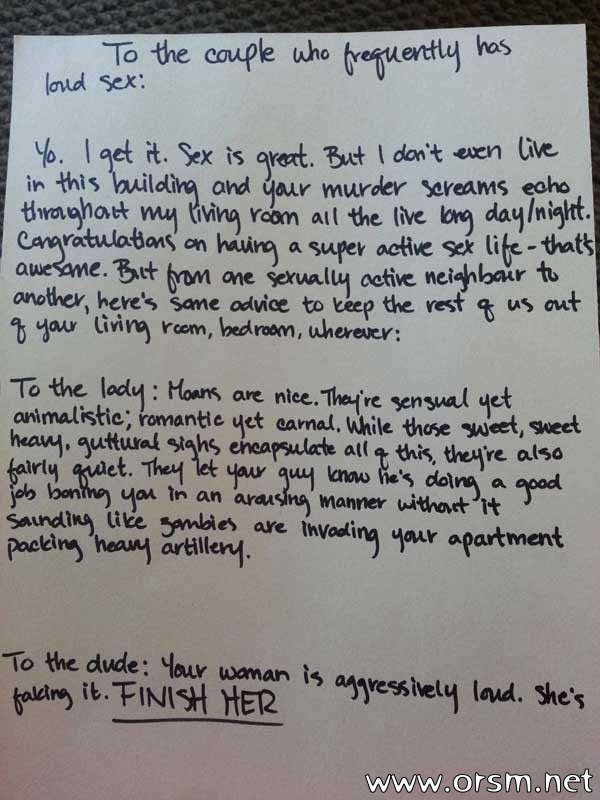 To the couple who frequently has
loud sex:
Yo. I get it. Sex is great. But I don't even live
in this building and your murder screams echo
throughout my living room all the live long day/night.
Congratulations on having a super active sex life - that's
awesome. But from one sexually active neighbour to
another, here's some advice to keep the rest of us out
of your living room, bedroom, wherever:
To the lady: Moans are nice. They're sensual yet
animalistic; romantic yet carnal. While those sweet, sweet
heavy, guttural sighs encapsulate all of this, they're also
fairly quiet. They let your guy know he's doing a good
job boning you in an arousing manner without it
sounding like zombies are invading your apartment
packing heavy artillery.
To the dude: Your woman is aggressively loud. She's
faking it. FINISH HER
www.orsm.net